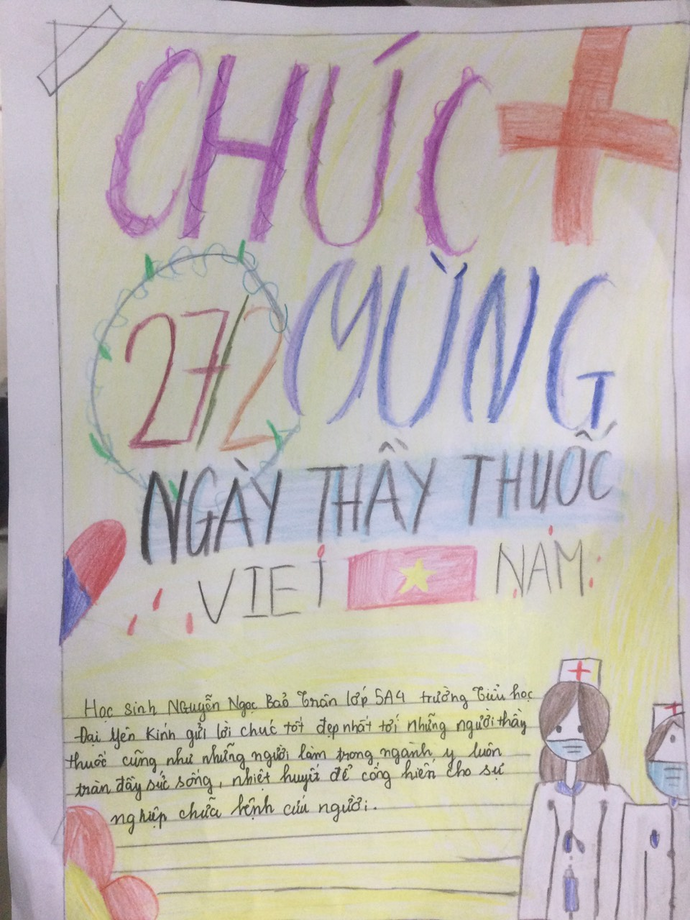 CHÚC
27/2 MỪNG
NGÀY THẦY THUỐC
VIỆT NAM
Học sinh Nguyễn Ngọc Bảo Trân lớp 5A4 trường Tiểu học
Đại Yên Kính gửi lời chúc tốt đẹp nhất tới những người thầy
thuốc cũng như những người làm trong ngành y luôn
tràn đầy sức sống, nhiệt huyết để cống hiến cho sự
nghiệp chữa bệnh cứu người.